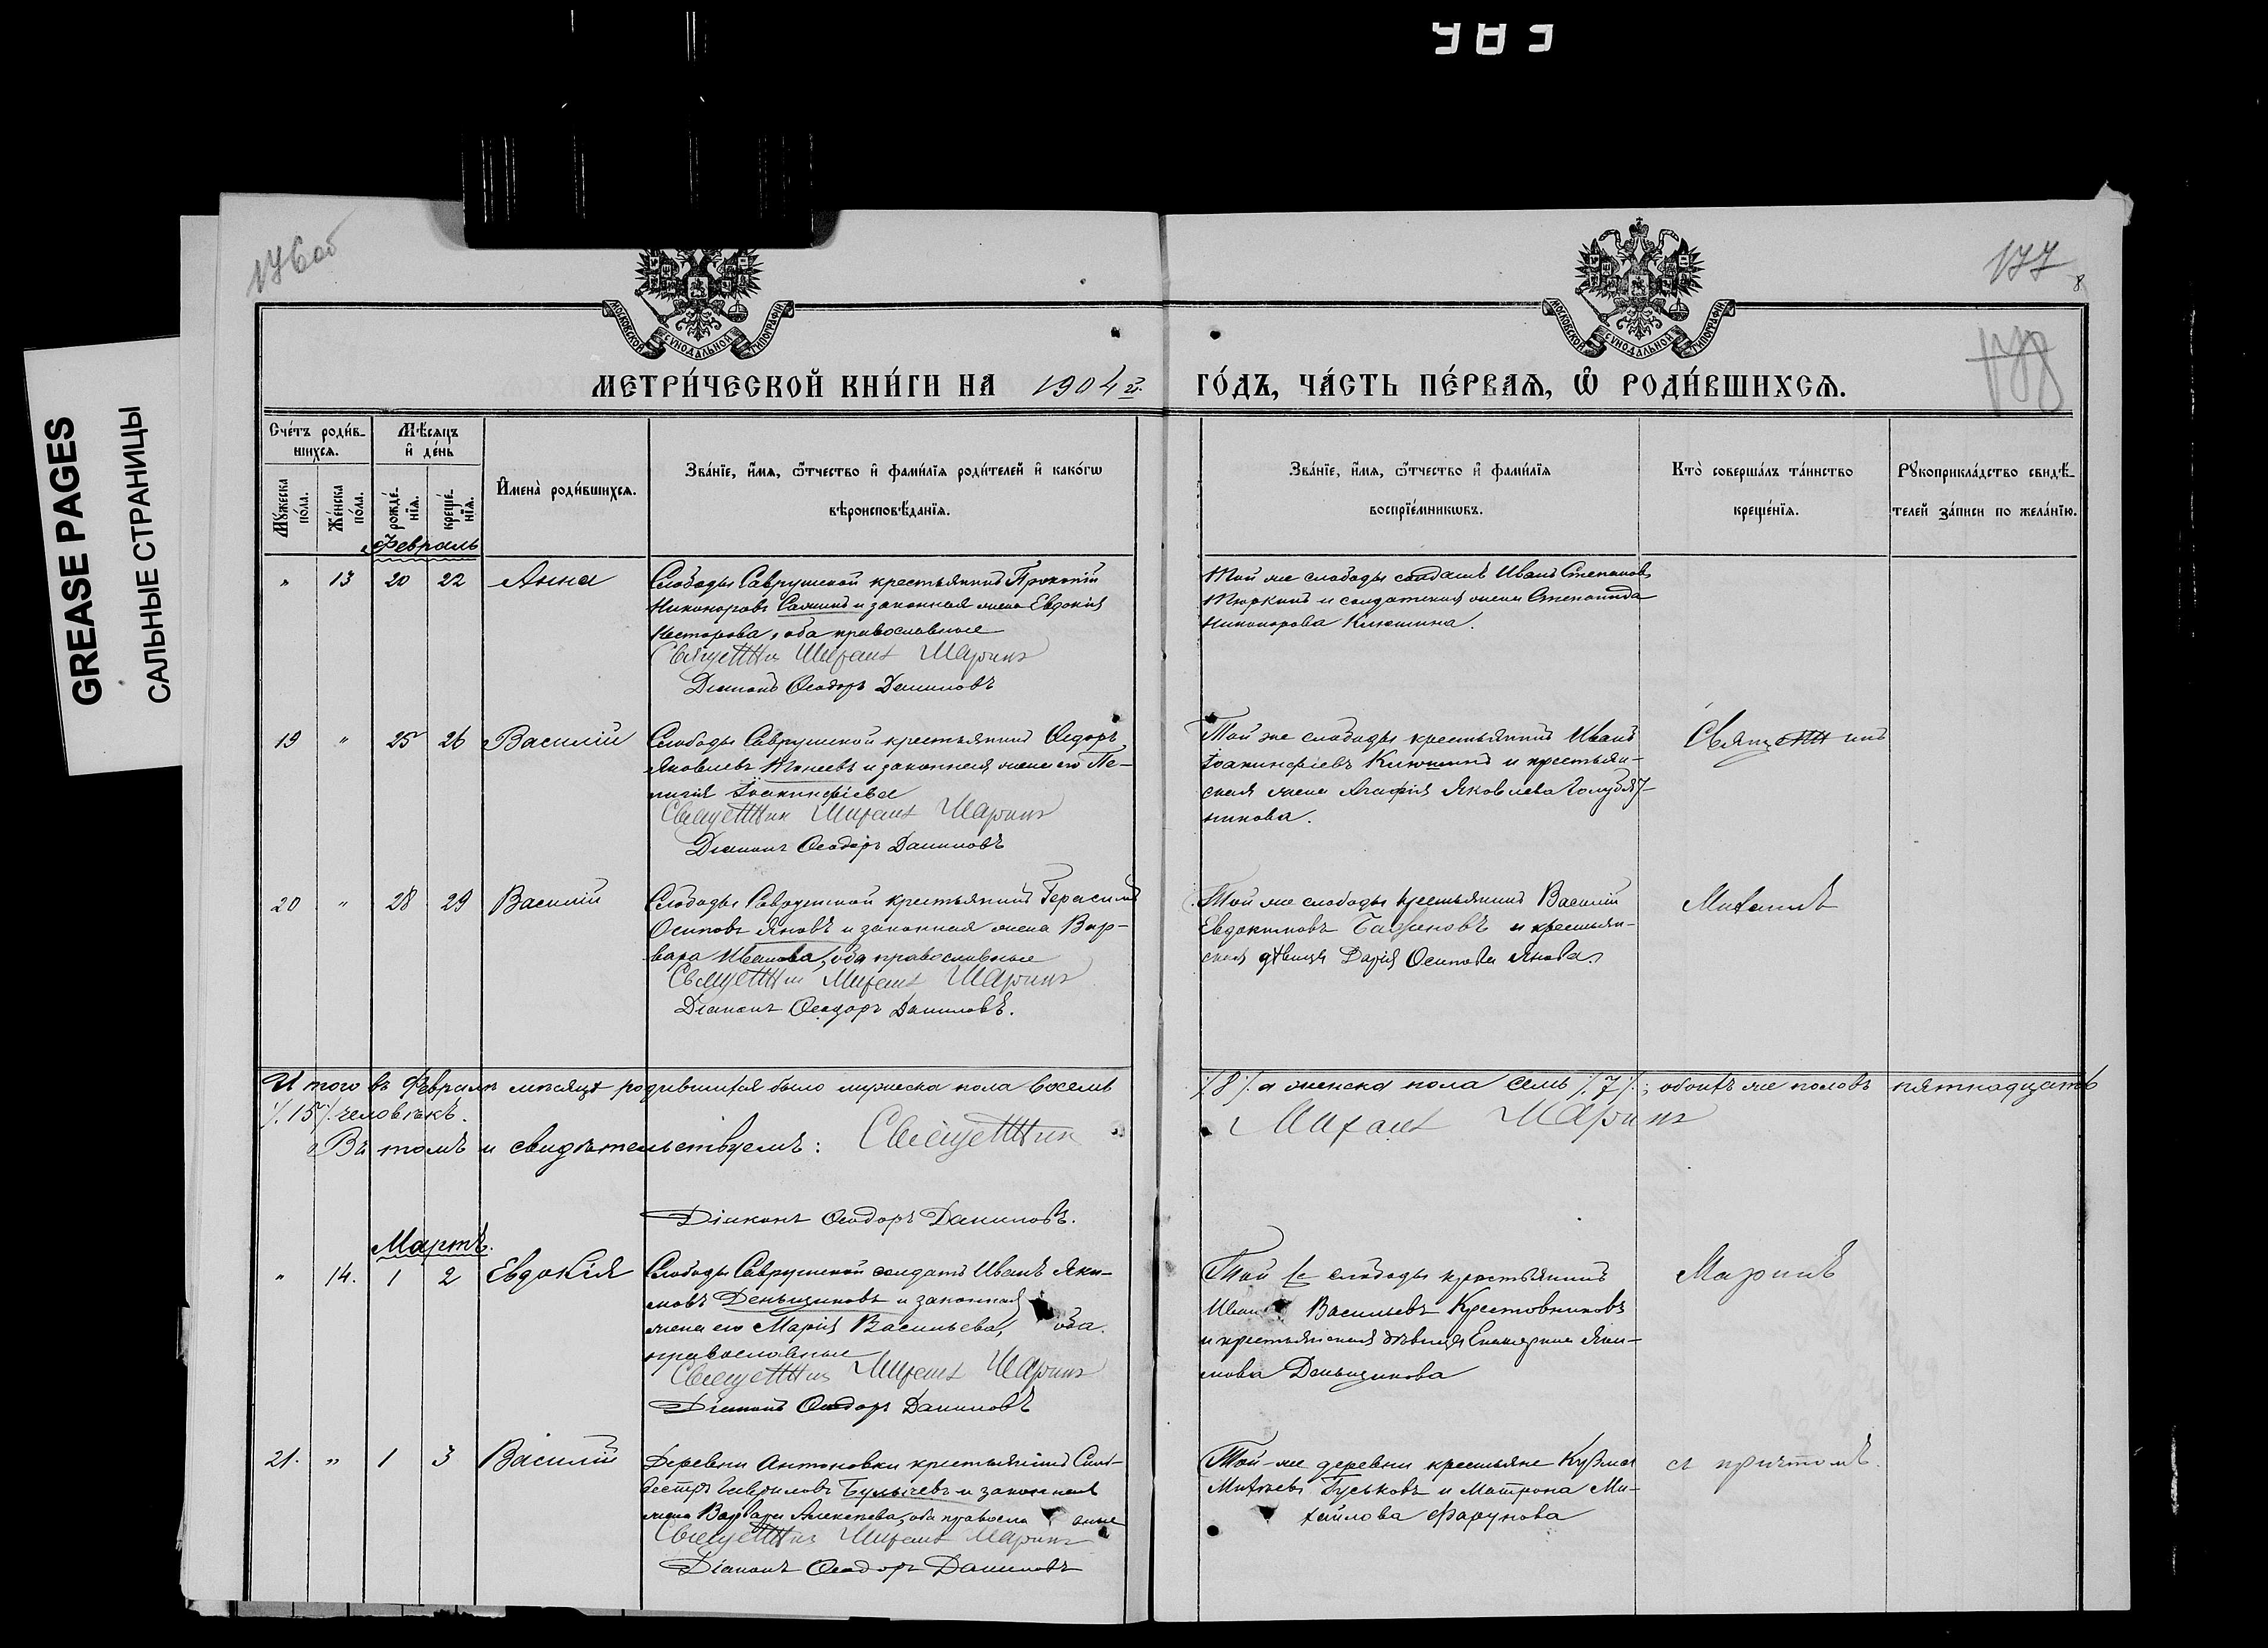 985
GREASE PAGES
САЛЬНЫЕ СТРАНИЦЫ
176 об
177
8
178
МОСКОВСКОЙ СУНОДАЛЬНОЙ ТИПОГРАФІИ
МОСКОВСКОЙ СУНОДАЛЬНОЙ ТИПОГРАФІИ
МЕТРИ́ЧЕСКОЙ КНИ́ГИ НА 1904 й. ГО́ДЪ, ЧА́СТЬ ПЕ́РВАѦ, Ѿ РОДИ́ВШИХСѦ.
Сче́тъ роди́в-
шихсѧ.
Мꙋ́жеска
по́ла.
Же́нска
по́ла.
Мѣ́сѧцъ
и҆ де́нь
рожде́-
нїѧ.
креще́-
нїѧ.
И҆мена̀ роди́вшихсѧ.
Зва́нїе, и҆́мѧ, ѻ҆́тчество и҆ фами́лїѧ роди́телей и҆ како́гѡ
вѣроисповѣ́данїѧ.
Зва́нїе, и҆́мѧ, ѻ҆́тчество и҆ фами́лїѧ
воспрїе́мникѡвъ.
Кто̀ соверша́лъ та́инство
креще́нїѧ.
Рꙋкоприкла́дство свидѣ́-
телей за́писи по жела́нїю.
Февраль
" 13 20 22 Анна
Слободы Саврушской крестьянинъ Прокопій
Никоноровъ и законная жена Евдокія
Несторова, оба православные
Священникъ Михаилъ Маринъ
Діаконъ Ѳеодоръ Даниловъ
Той же слободы солдатъ Иванъ Степановъ
Тюркинъ и солдатская жена Степанида
Никонорова Клюшина.
19 " 25 26 Василій
Слободы Саврушской крестьянинъ Ѳедоръ
Яковлевъ и законная жена его Пе-
лагія Іоакинфіева
Священникъ Михаилъ Маринъ
Діаконъ Ѳеодоръ Даниловъ
Той же слободы крестьянинъ Иванъ
Іоакинфіевъ Клюшинъ и крестьян-
ская жена Агафія Яковлева Голубят-
никова.
Священникъ
20 " 28 29 Василій
Слободы Саврушской крестьянинъ Герасимъ
Осиповъ Яновъ и законная жена Вар-
вара Иванова, оба православные
Священникъ Михаилъ Маринъ
Діаконъ Ѳеодоръ Даниловъ.
Той же слободы крестьянинъ Василій
Евдокимовъ и крестьян-
ская дѣвица Дарія Осипова Янова.
Михаилъ
Итого въ Февралѣ мѣсяцѣ родившихся было мужеска пола восемь /.8/. а женска пола семь /.7/.; обоихъ же половъ пятнадцать
/.15/. человѣкъ.
Въ томъ и свидѣтельствуемъ: Священникъ Михаилъ Маринъ
Діаконъ Ѳеодоръ Даниловъ.
Мартъ.
" 14. 1 2 Евдокія
Слободы Саврушской солдатъ Иванъ Яки-
мовъ Деньщиковъ и законная
жена его Марія Васильева, оба
православные
Священникъ Михаилъ Маринъ
Діаконъ Ѳеодоръ Даниловъ
Той же слободы крестьянинъ
Иванъ Васильевъ Крестовниковъ
и крестьянская дѣвица Екатерина Яки-
мова Деньщикова
Маринъ
21. " 1 3 Василій
Деревни Антоновки крестьянинъ Силь-
вестръ Гавриловъ Булычевъ и законная
жена Варвара Алексѣева, оба православные
Священникъ Михаилъ Маринъ
Діаконъ Ѳеодоръ Даниловъ
Той-же деревни крестьяне Кузма
Гуськовъ и Матрона Ми-
хайлова Фарунова
съ причтомъ.